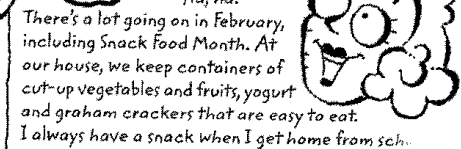 There's a lot going on in February,
including Snack Food Month. At
our house, we keep containers of
cut-up vegetables and fruits, yogurt
and graham crackers that are easy to eat.
I always have a snack when I get home from